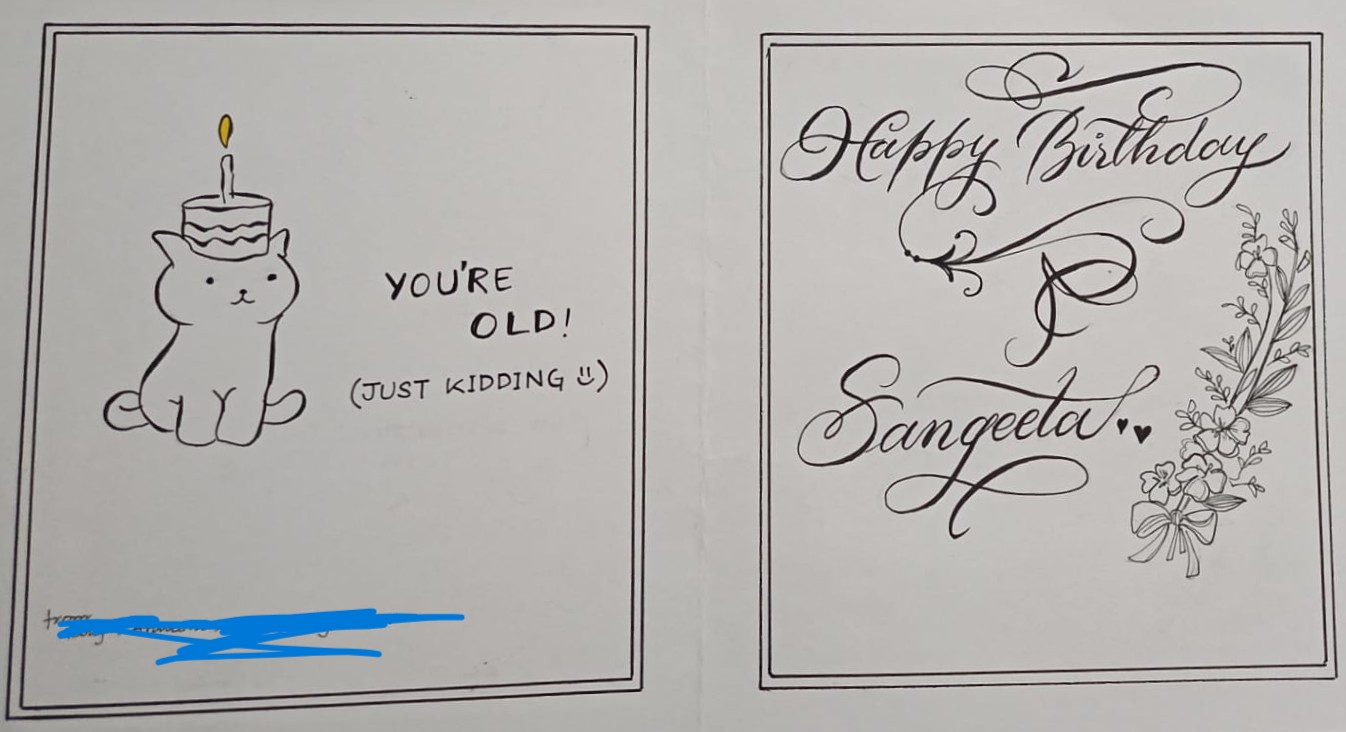 YOU'RE
OLD!
(JUST KIDDING :))
from
Happy Birthday
P
Sangeeta